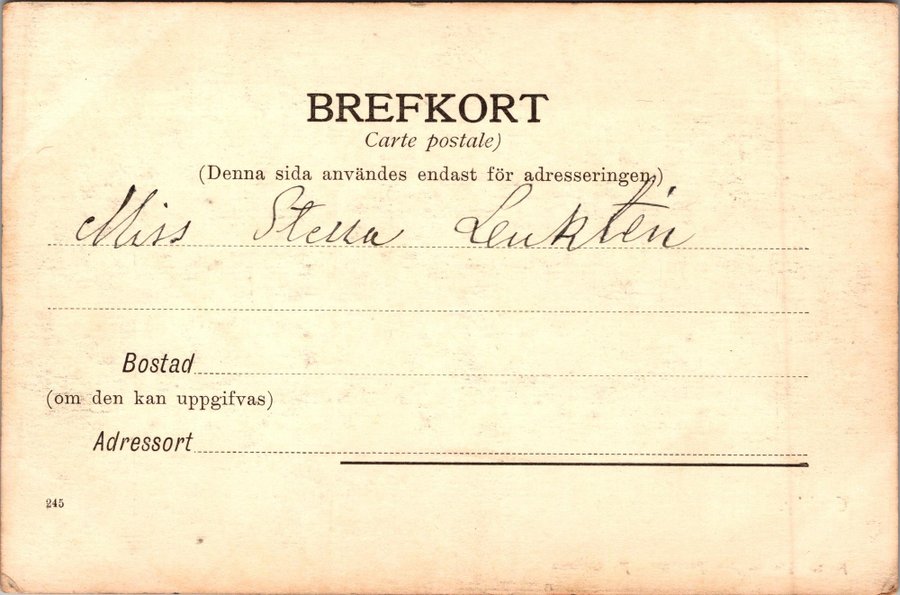 BREFKORT
Carte postale)
(Denna sida användes endast för adresseringen)
Miss Stella Leuktén
Bostad
(om den kan uppgifvas)
Adressort
245